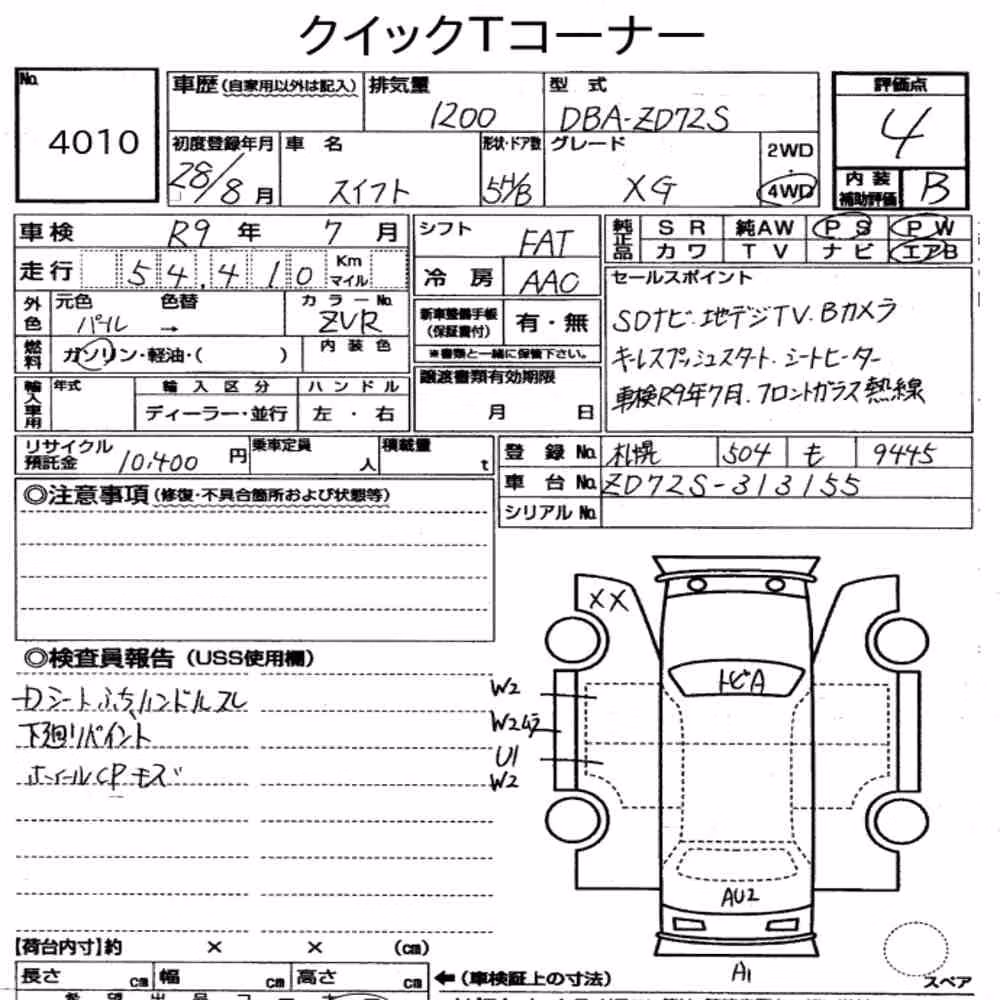 クイックTコーナー
No. 4010
車歴(自家用以外は記入) 排気量 1200 型式 DBA-ZD72S 評価点 4
初度登録年月 28/8月 車名 スイフト 形状・ドア数 5H/B グレード XG 2WD 4WD 内装補助評価 B
車検 R9年 7月 シフト FAT 純正品 SR 純AW PS PW
カワ TV ナビ エアB
走行 54,410 Km マイル 冷房 AAC
外色 元色 パール 色替 → カラーNo. ZVR
新車整備手帳(保証書付) 有・無
※書類と一緒に保管下さい。
燃料 ガソリン・軽油・( ) 内装色
譲渡書類有効期限 月 日
輸入車用 年式 輸入区分 ディーラー・並行 ハンドル 左・右
セールスポイント
SDナビ.地デジTV.Bカメラ
キーレスプッシュスタート.シートヒーター
車検R9年7月.フロントガラス熱線
リサイクル預託金 10,400円 乗車定員 人 積載量 t
登録No. 札幌 504 も 9445
車台No. ZD72S-313155
シリアルNo.
◎注意事項(修復・不具合箇所および状態等)
◎検査員報告(USS使用欄)
Dシートふち/ハンドルスレ
下廻リペイント
ホイールCPキズ
XX
トビA
W2
W2ムラ
U1
W2
AU2
A1
スペア
【荷台内寸】約 × × (cm)
長さ cm 幅 cm 高さ cm ←(車検証上の寸法)